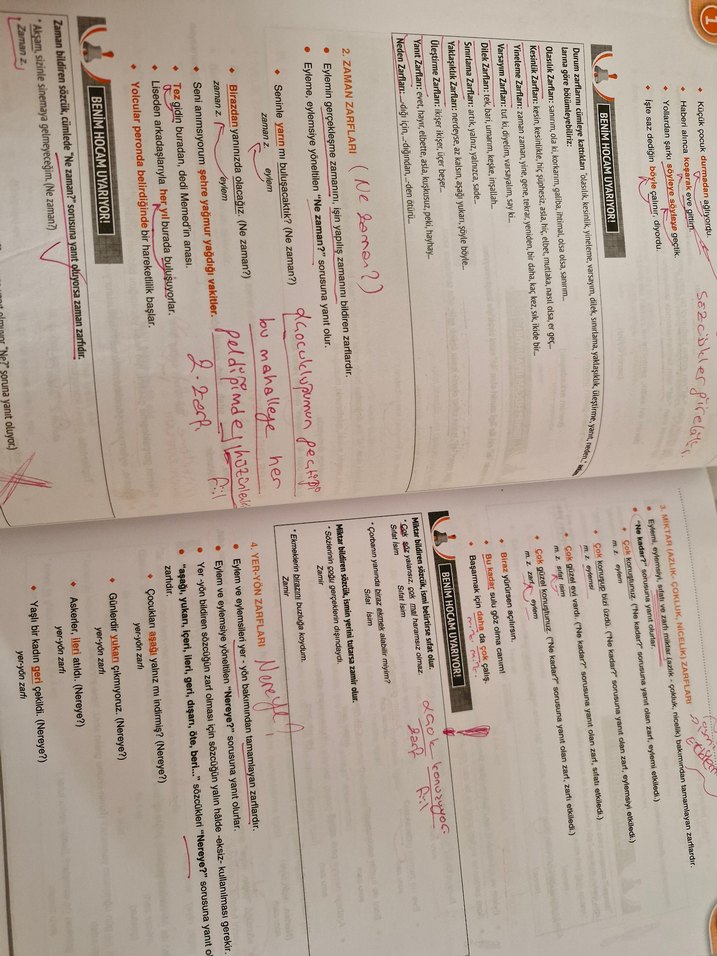 1
Küçük çocuk durmadan ağlıyordu.
Haberi alınca koşarak eve gittim.
Yollardan şarkı söyleye söyleye geçtik.
İşte saz dediğin böyle çalınır, diyordu.
BENİM HOCAM UYARIYOR!
Durum zarflarını cümleye kattıkları "olasılık, kesinlik, yineleme, varsayım, dilek, sınırlama, yaklaşıklık, üleştirme, yanıt, neden"
larına göre bölümleyebiliriz:
Olasılık Zarfları: sanırım, ola ki, korkarım, galiba, ihtimal, olsa olsa, sanırım...
Kesinlik Zarfları: kesin, kesinlikle, hiç şüphesiz, asla, hiç, elbet, mutlaka, nasıl olsa, er geç...
Yineleme Zarfları: zaman zaman, yine, gene, tekrar, yeniden, bir daha, kaç kez, sık, ikide bir...
Varsayım Zarfları: tut ki, diyelim, varsayalım, say ki...
Dilek Zarfları: tek, bari, umarım, keşke, inşallah...
Sınırlama Zarfları: artık, yalnız, yalnızca, sade...
Yaklaşıklık Zarfları: neredeyse, az kalsın, aşağı yukarı, şöyle böyle...
Üleştirme Zarfları: ikişer ikişer, üçer beşer...
Yanıt Zarfları: evet, hayır, elbette, asla, kuşkusuz, peki, hayhay...
Neden Zarfları: ...-dığı için, ...-dığından, ...-den ötürü...
2. ZAMAN ZARFLARI (Ne zaman?)
Eylemin gerçekleşme zamanını, işin yapılış zamanını bildiren zarflardır.
Eyleme, eylemsiye yöneltilen "Ne zaman?" sorusuna yanıt olur.
Seninle yarın mı buluşacaktık? (Ne zaman?)
zaman z. eylem
Birazdan yanınızda olacağız. (Ne zaman?)
zaman z. eylem
Seni anımsıyorum şehre yağmur yağdığı vakitler.
Tez gidin buradan, dedi Memed'in anası.
Liseden arkadaşlarıyla her yıl burada buluşuyorlar.
Yolcular peronda belirdiğinde bir hareketlilik başlar.
Çocukluğumun geçtiği
bu mahalleye her
geldiğimde hüzünle
2. zarf fiil
BENİM HOCAM UYARIYOR!
Zaman bildiren sözcük, cümlede "Ne zaman?" sorusuna yanıt oluyorsa zaman zarfıdır.
* Akşam, sizinle sinemaya gelmeyeceğim. (Ne zaman?)
Zaman z.
"Ne?" soruna yanıt oluyor.)
3. MİKTAR (AZLIK- ÇOKLUK, NİCELİK) ZARFLARI
Eylemi, eylemsiyi, sıfatı ve zarfı miktar (azlık - çokluk, nicelik) bakımından tamamlayan zarflardır.
"Ne kadar?" sorusuna yanıt olurlar.
Çok konuştunuz. ("Ne kadar?" sorusuna yanıt olan zarf, eylemi etkiledi.)
m. z. eylem
Çok konuşup bizi üzdü. ("Ne kadar?" sorusuna yanıt olan zarf, eylemsiyi etkiledi.)
m. z. eylemsi
Çok güzel evi vardı. ("Ne kadar?" sorusuna yanıt olan zarf, sıfatı etkiledi.)
m. z. sıfat isim
Çok güzel konuştunuz. ("Ne kadar?" sorusuna yanıt olan zarf, zarfı etkiledi.)
m. z. zarf eylem
Biraz yürürsen açılırsın.
Bu kadar sulu göz olma canım!
Başarmak için daha da çok çalış.
BENİM HOCAM UYARIYOR!
Miktar bildiren sözcük, ismi belirtirse sıfat olur.
* Çok söz yalansız, çok mal haramsız olmaz.
Sıfat İsim Sıfat İsim
* Çorbanın yanında biraz ekmek alabilir miyim?
Sıfat İsim
Miktar bildiren sözcük, ismin yerini tutarsa zamir olur.
* Sözlerinin çoğu gerçeklerin dışındaydı.
Zamir
* Ekmeklerin birazını buzluğa koydum.
Zamir
Çok konuşuyor.
zarf fiil
4. YER-YÖN ZARFLARI Nereye?
Eylem ve eylemsileri yer - yön bakımından tamamlayan zarflardır.
Eylem ve eylemsiye yöneltilen "Nereye?" sorusuna yanıt olurlar.
Yer -yön bildiren sözcüğün zarf olması için sözcüğün yalın hâlde -eksiz- kullanılması gerekir.
"aşağı, yukarı, içeri, ileri, geri, dışarı, öte, beri..." sözcükleri "Nereye?" sorusuna yanıt
zarfıdır.
Çocukları aşağı yalnız mı indirmiş? (Nereye?)
yer-yön zarfı
Günlerdir yukarı çıkmıyoruz. (Nereye?)
yer-yön zarfı
Askerler, ileri atıldı. (Nereye?)
yer-yön zarfı
Yaşlı bir kadın geri çekildi. (Nereye?)
yer-yön zarfı